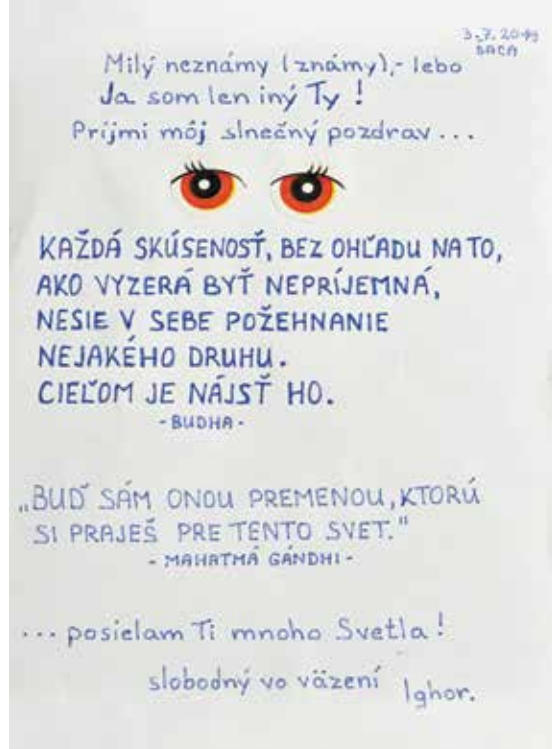 3.7.2019
BACA
Milý neznámy (známy),- lebo
Ja som len iný Ty !
Príjmi môj slnečný pozdrav...
KAŽDÁ SKÚSENOSŤ, BEZ OHĽADU NA TO,
AKO VYZERÁ BYŤ NEPRÍJEMNÁ,
NESIE V SEBE POŽEHNANIE
NEJAKÉHO DRUHU.
CIEĽOM JE NÁJSŤ HO.
- BUDHA -
„BUĎ SÁM ONOU PREMENOU, KTORÚ
SI PRAJEŠ PRE TENTO SVET."
- MAHATMÁ GÁNDHI -
... posielam Ti mnoho Svetla!
slobodný vo väzení Ighor.